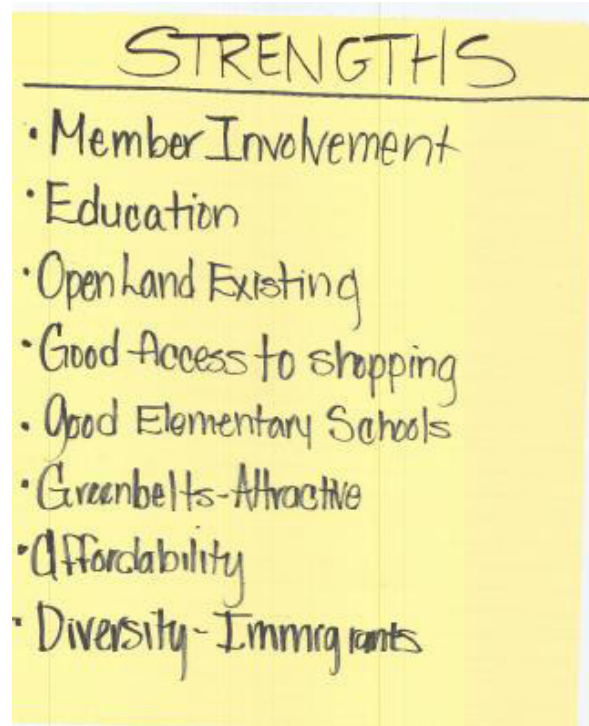 STRENGTHS
• Member Involvement
• Education
• Open Land Existing
• Good Access to shopping
• Good Elementary Schools
• Greenbelts - Attractive
• Affordability
• Diversity - Immigrants